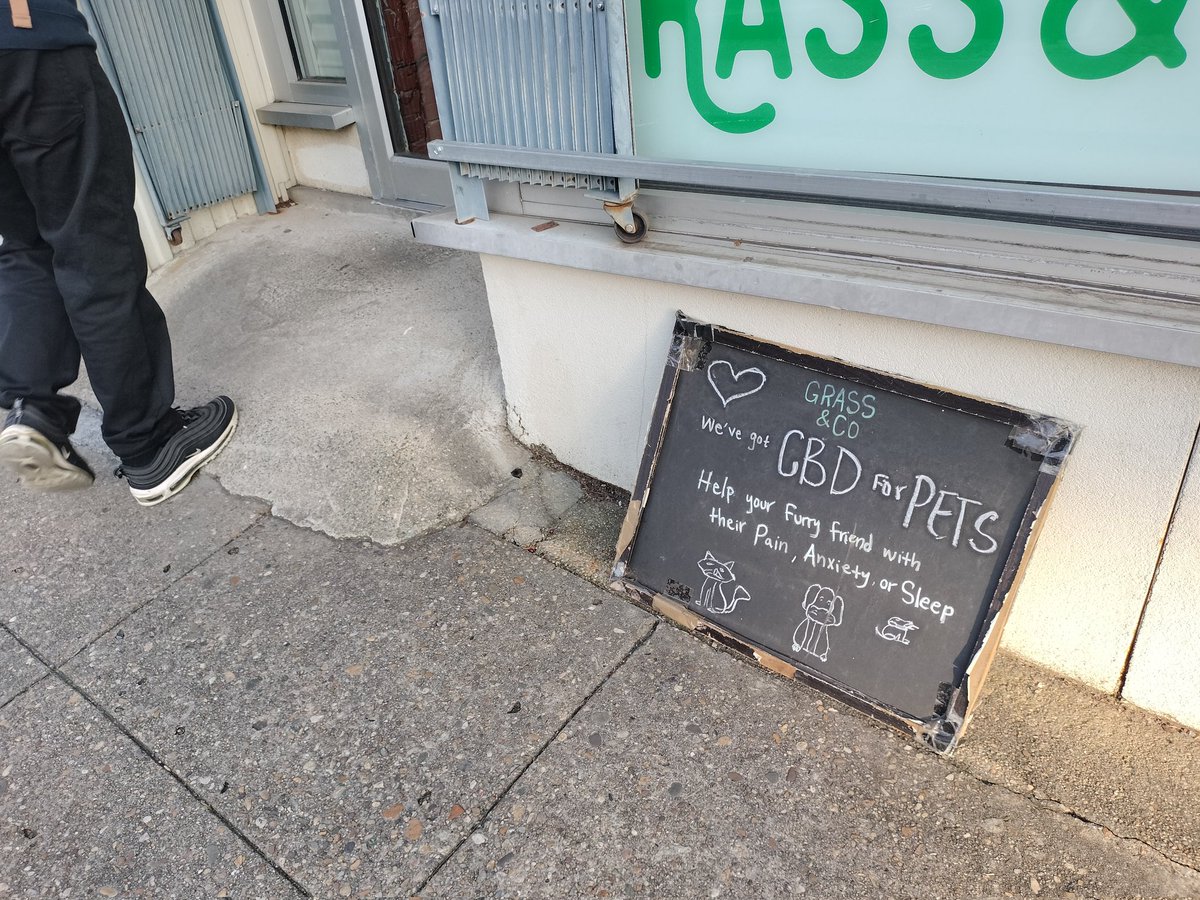 GRASS &
GRASS
& CO
We've got CBD For PETS
Help your Furry friend with
their Pain, Anxiety, or Sleep